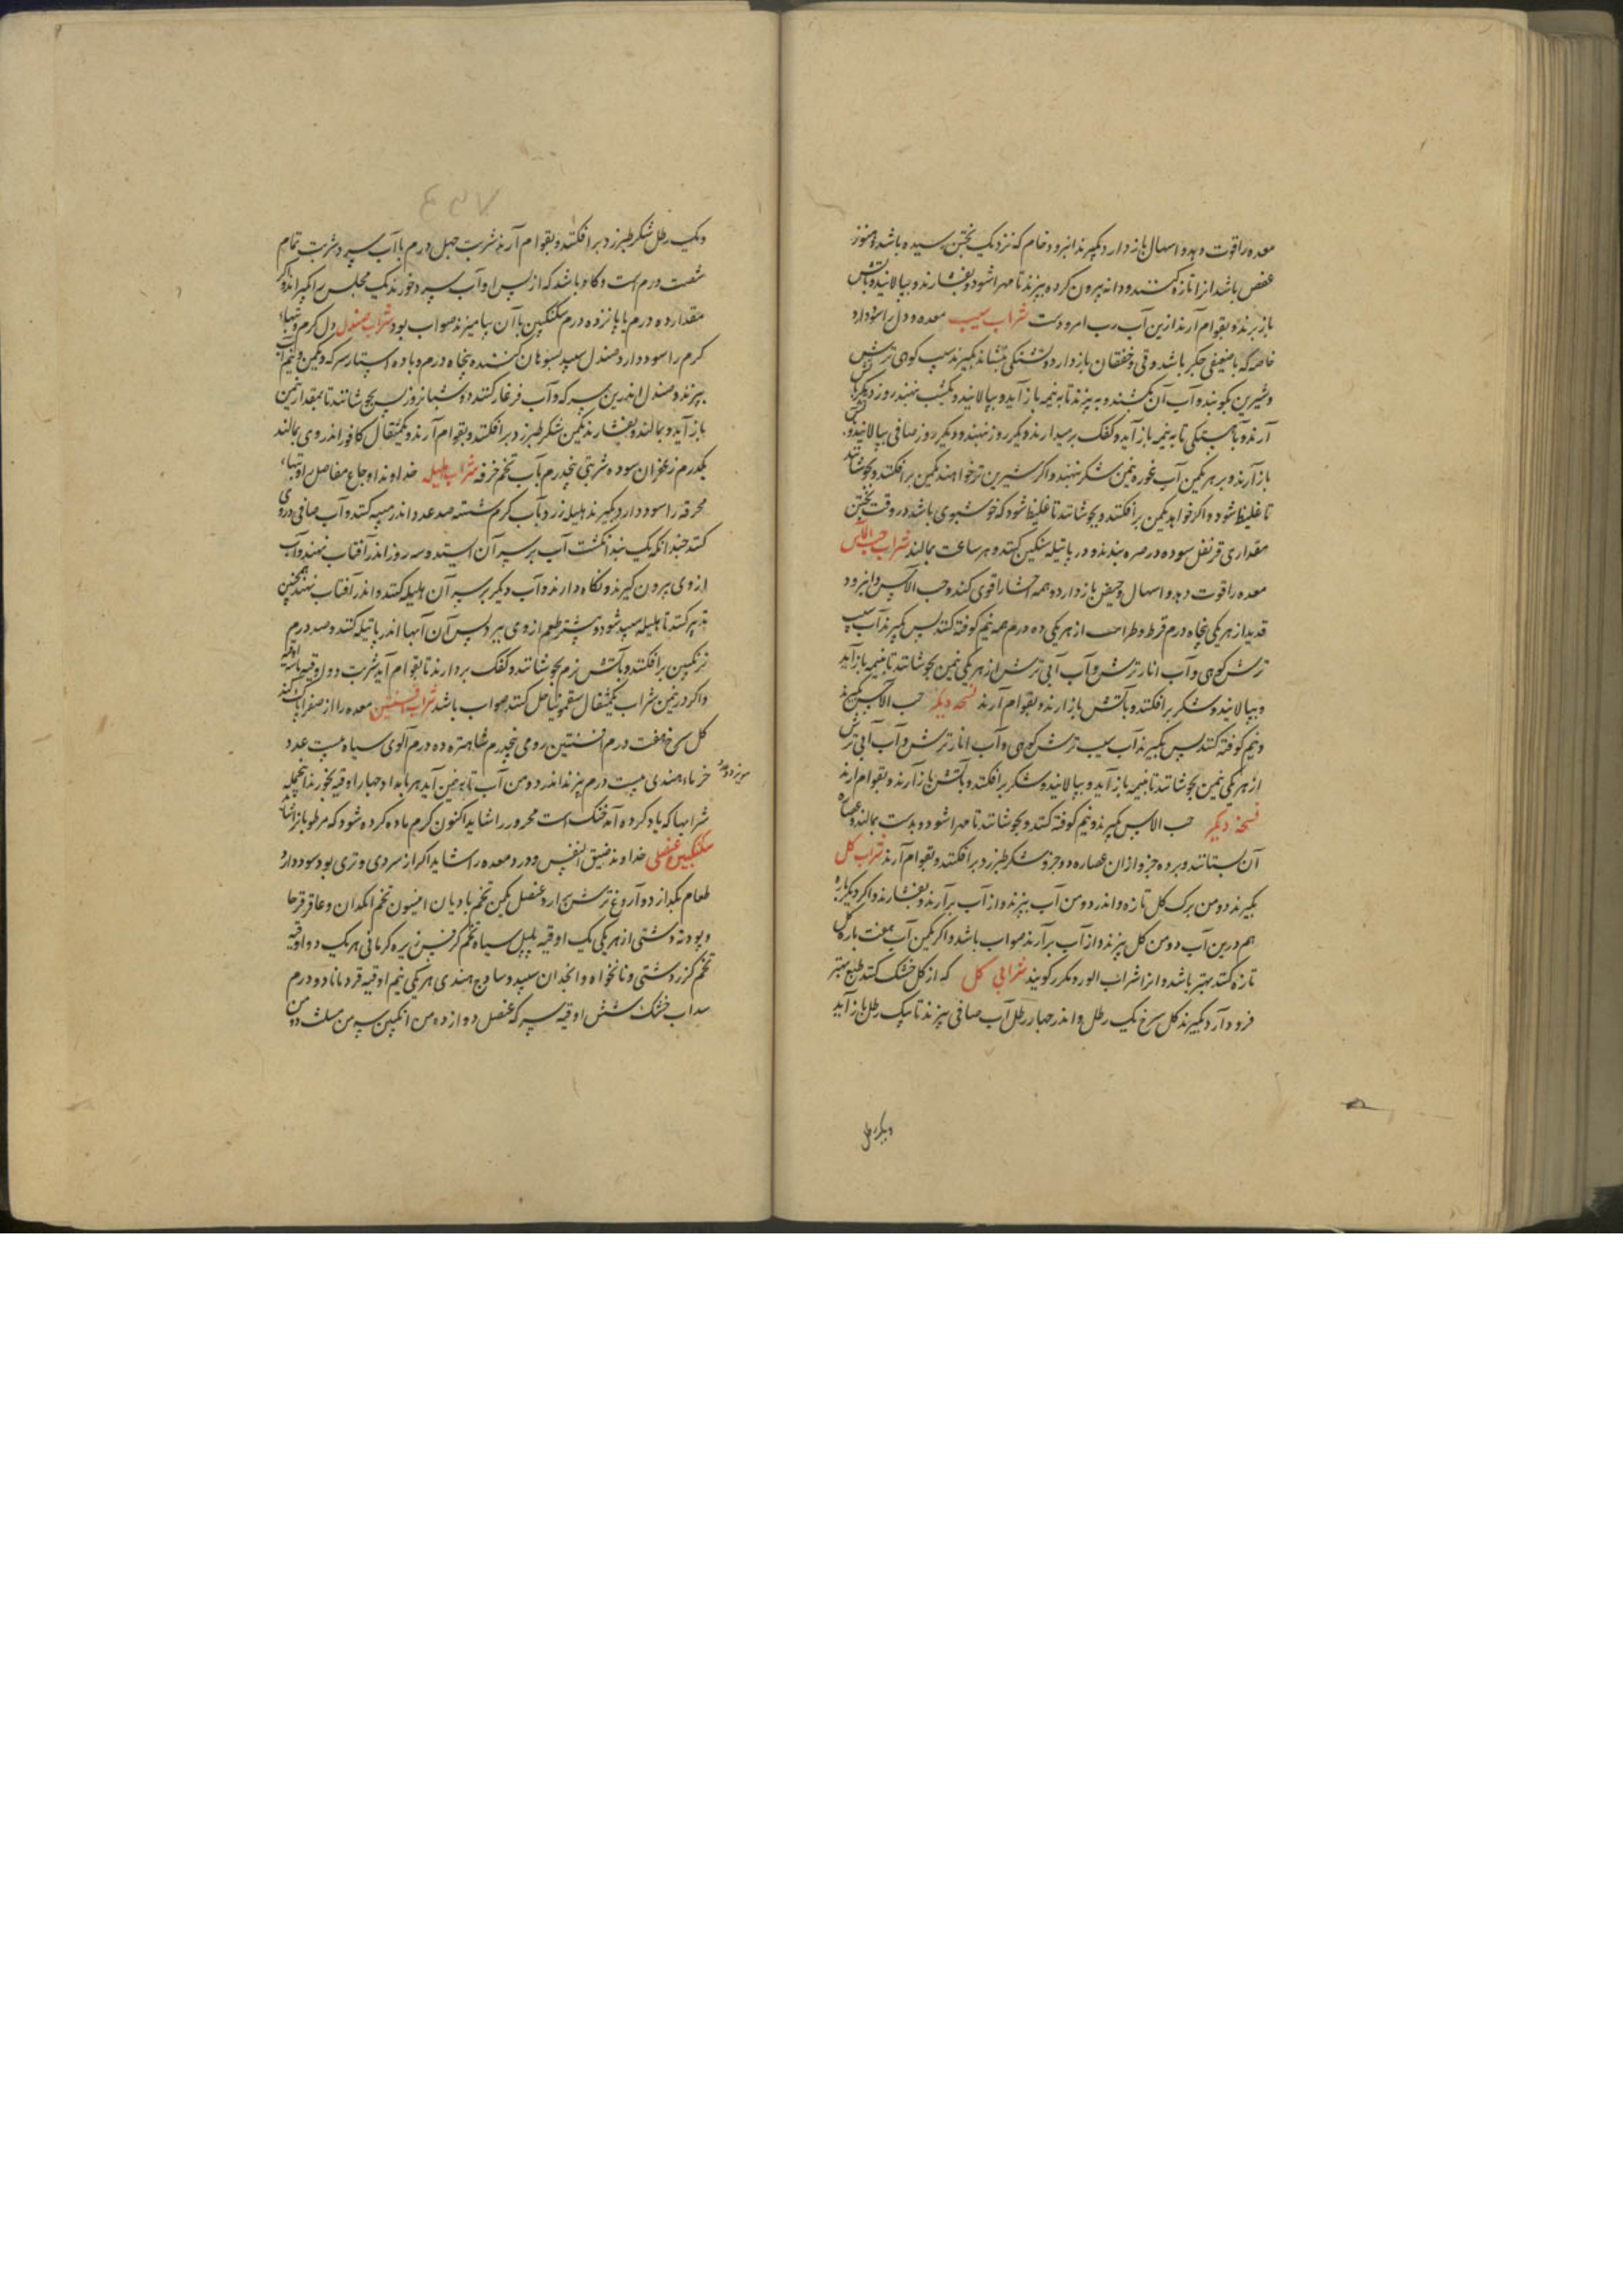 معده را قوت دهد و اسهال باز دارد بگیرند انبرود خام که نزدیک پختن رسیده باشد و هنوز
عفص باشد انرا تازه کنند و دانه بیرون کرده بپزند تا مهرا شود و بفشارند و بپالانید و باتش
باز برند و بقوام آرند ازین آب رب امرودست شراب سیب معده و دل را سود دارد
خاصه که با ضعیفی جگر باشد و قی و خفقان باز دارد و تشنکی بنشاند بگیرند سیب کوهی ترش
و شیرین بکوبند و آب آن بکشند و به پزند تا به نیمه باز آید و بپالانید و یکشب بنهند روز دیگر
آرند و باهستکی تا به نیمه باز آید و کفک برمیدارند و یکروز بنهند و دیگر روز صافی بپالانید و
باز آرند و بر هر یکمن آب غوره نیمن شکر بنهند و اکر شیرین تر خواهند یکمن برافکنند و بجوشانند
تا غلیظ شود و اکر خواهد یکمن برافکنند و بجوشانند تا غلیظ شود که خوشبوی باشد در وقت پختن
مقداری قرنفل سوده در صره بندند و در پاتیله سنکین کنند و هر ساعت بمالند شراب حب الآس
معده را قوت دهد و اسهال و حیض باز دارد و همه احشا را قوی کند و حب الآس و انبرود
قدید از هر یکی پنجاه درم قرط و طراثیث از هر یکی ده درم همه نیم کوفته کنند پس بگیرند آب سیب
ترش کوهی و آب انار ترش و آب آبی ترش از هر یکی نیمن بجوشانند تا بنیمه باز آید
و بپالانید و شکر برافکنند و باتش باز آرند و بقوام آرند نسخه دیگر حب الآس بگیرند
و نیم کوفته کنند پس بگیرند آب سیب ترش کوهی و آب انار ترش و آب آبی ترش
از هر یکی نیمن بجوشانند تا بنیمه باز آید و بپالانید و شکر برافکنند و باتش باز آرند و بقوام آرند
نسخه دیگر حب الآس بگیرند و نیم کوفته کنند و بجوشانند تا مهرا شود و بدست بمالند و عصاره
آن بستانند و بر ده جزو ازان عصاره دو جزو شکر طبرزد برافکنند و بقوام آرند شراب کل
بگیرند دو من برک کل تازه و اندر دو من آب بپزند و از آب برآرند و بفشارند و اکر دیگر باره
هم درین آب دو من کل بپزند و از آب برآرند صواب باشد و اکر یکمن آب هفت باره کل
تازه کنند بهتر باشد و انرا شراب الورد مکرر کویند شرابی کل که از کل خشک کنند طبع بهتر
فرود آرد بگیرند کل سرخ یک رطل و اندر چهار رطل آب صافی بپزند تا بیک رطل باز آید
و یک رطل
۷۵۴
و یک رطل شکر طبرزد برافکنند و بقوام آرند شربت چهل درم با آب سرد و شربت تمام
شصت درم است و کاه باشد که از پس او آب سرد خورند یک مجلس براکیزاند و اکر
مقدار ده درم یا پانزده درم سکنکبین با آن بیامیزند صواب بود شراب صندل دل کرم و تبهاء
کرم را سود دارد صندل سپید بسوهان کننده پنجاه درم و با ده استار سرکه و یکمن و نیم آب
بپزند و صندل اندرین سرکه و آب فرغار کنند دو شبانروز پس بجوشانند تا بمقدار نیمن
باز آید و بمالند و بفشارند یکمن شکر طبرزد برافکنند و بقوام آرند و یکمثقال کافور اندر وی بمالند
یکدرم زعفران سوده شربتی پنجدرم بآب تخم خرفه شراب هلیله خداوند اوجاع مفاصل را و تبهاء
محرقه را سود دارد بگیرند هلیله زرد بآب کرم شسته صد عدد اندر سبه کنند و آب صافی در وی
کنند چندانکه یک بند انکشت آب بر سر آن ایستد و سه روز اندر آفتاب نهند و آب
از وی بیرون کیرند و نکاه دارند و آب دیگر بر سر آن هلیله کنند و اندر آفتاب نهند همچنین
تدبیر کنند تا هلیله سپید شود و بیشتر طعم از وی ببرد پس آن آبها اندر پاتیله کنند و صد درم
ترنکبین برافکنند و باتش نرم بجوشانند و کفک بردارند تا بقوام آید شربت دو اوقیه تا سه اوقیه
و اکر در نیمن شراب یکمثقال سقمونیا حل کنند صواب باشد شراب افسنتین معده را از صفرا پاک کند
کل سرخ هفت درم افسنتین رومی پنجدرم شاهتره ده درم آلوی سیاه بیست عدد
مویز دو عدد
خرماء هندی بیست درم بپزند اندر دو من آب تا بنیمن آید هر بامداد چهار اوقیه بخورند اینجمله
شرابها که یاد کرده آمد خنک است محرور را شاید اکنون کرم یاده کرده شود که مرطوبانرا شاید
سکنکبین عنصلی خداوند ضیق النفس و درد معده را شاید اکر از سردی و تری بود سود دارد
طعام بکدازد و آروغ ترش باز دارد عنصل یکمن تخم بادیان انیسون تخم انکدان و عاقرقرحا
و پودنه دشتی از هر یکی یک اوقیه پلپل سیاه تخم کرفس زیره کرمانی هر یک دو اوقیه
تخم کزر دشتی و نانخواه و انجدان سپید و ساذج هندی هر یکی نیم اوقیه قردمانا دو درم
سداب خشک شش اوقیه سرکه عنصل دوازده من انکبین سه من مثلث دو من